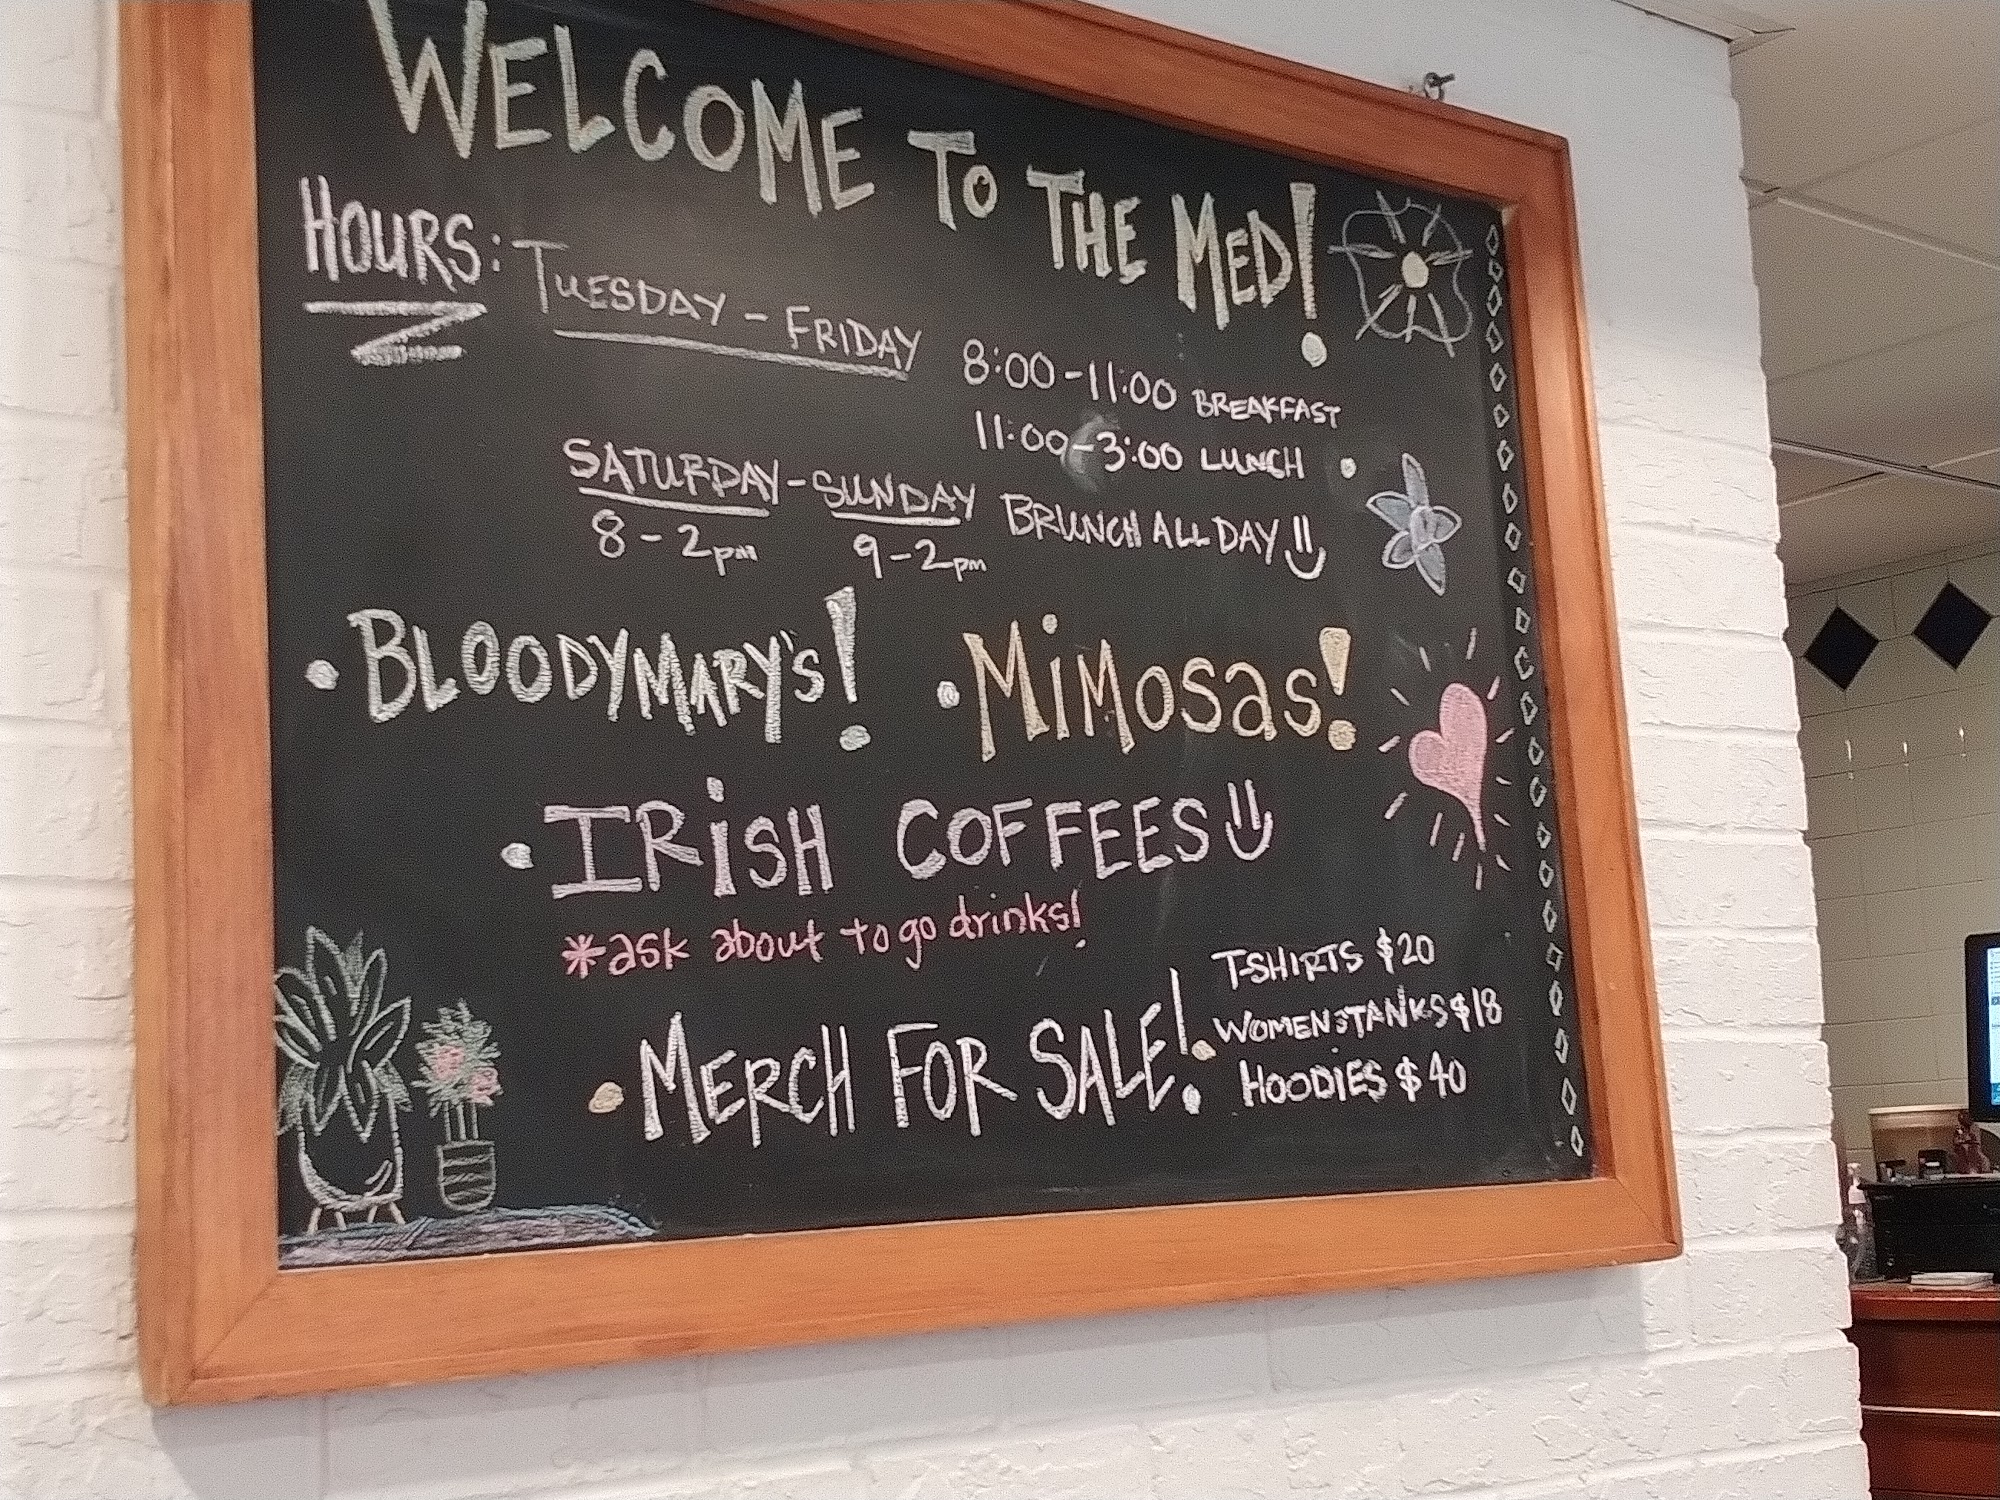 WELCOME TO THE MED!
HOURS: TUESDAY - FRIDAY 8:00-11:00 BREAKFAST
11:00-3:00 LUNCH
SATURDAY - SUNDAY BRUNCH ALL DAY
8-2pm 9-2pm
• BLOODYMARY'S! • MiMOSAS!
• IRiSH COFFEES
*ask about to go drinks!
• MERCH FOR SALE! T-SHIRTS $20
WOMENSTANKS $18
HOODiES $40